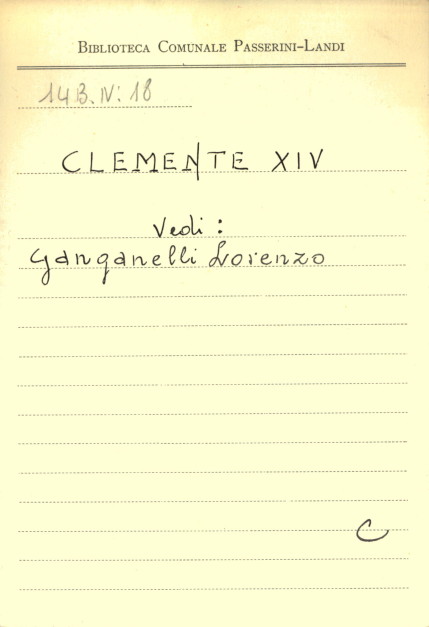 BIBLIOTECA COMUNALE PASSERINI-LANDI
14 B. IV: 18
CLEMENTE XIV
Vedi:
Ganganelli Lorenzo
C